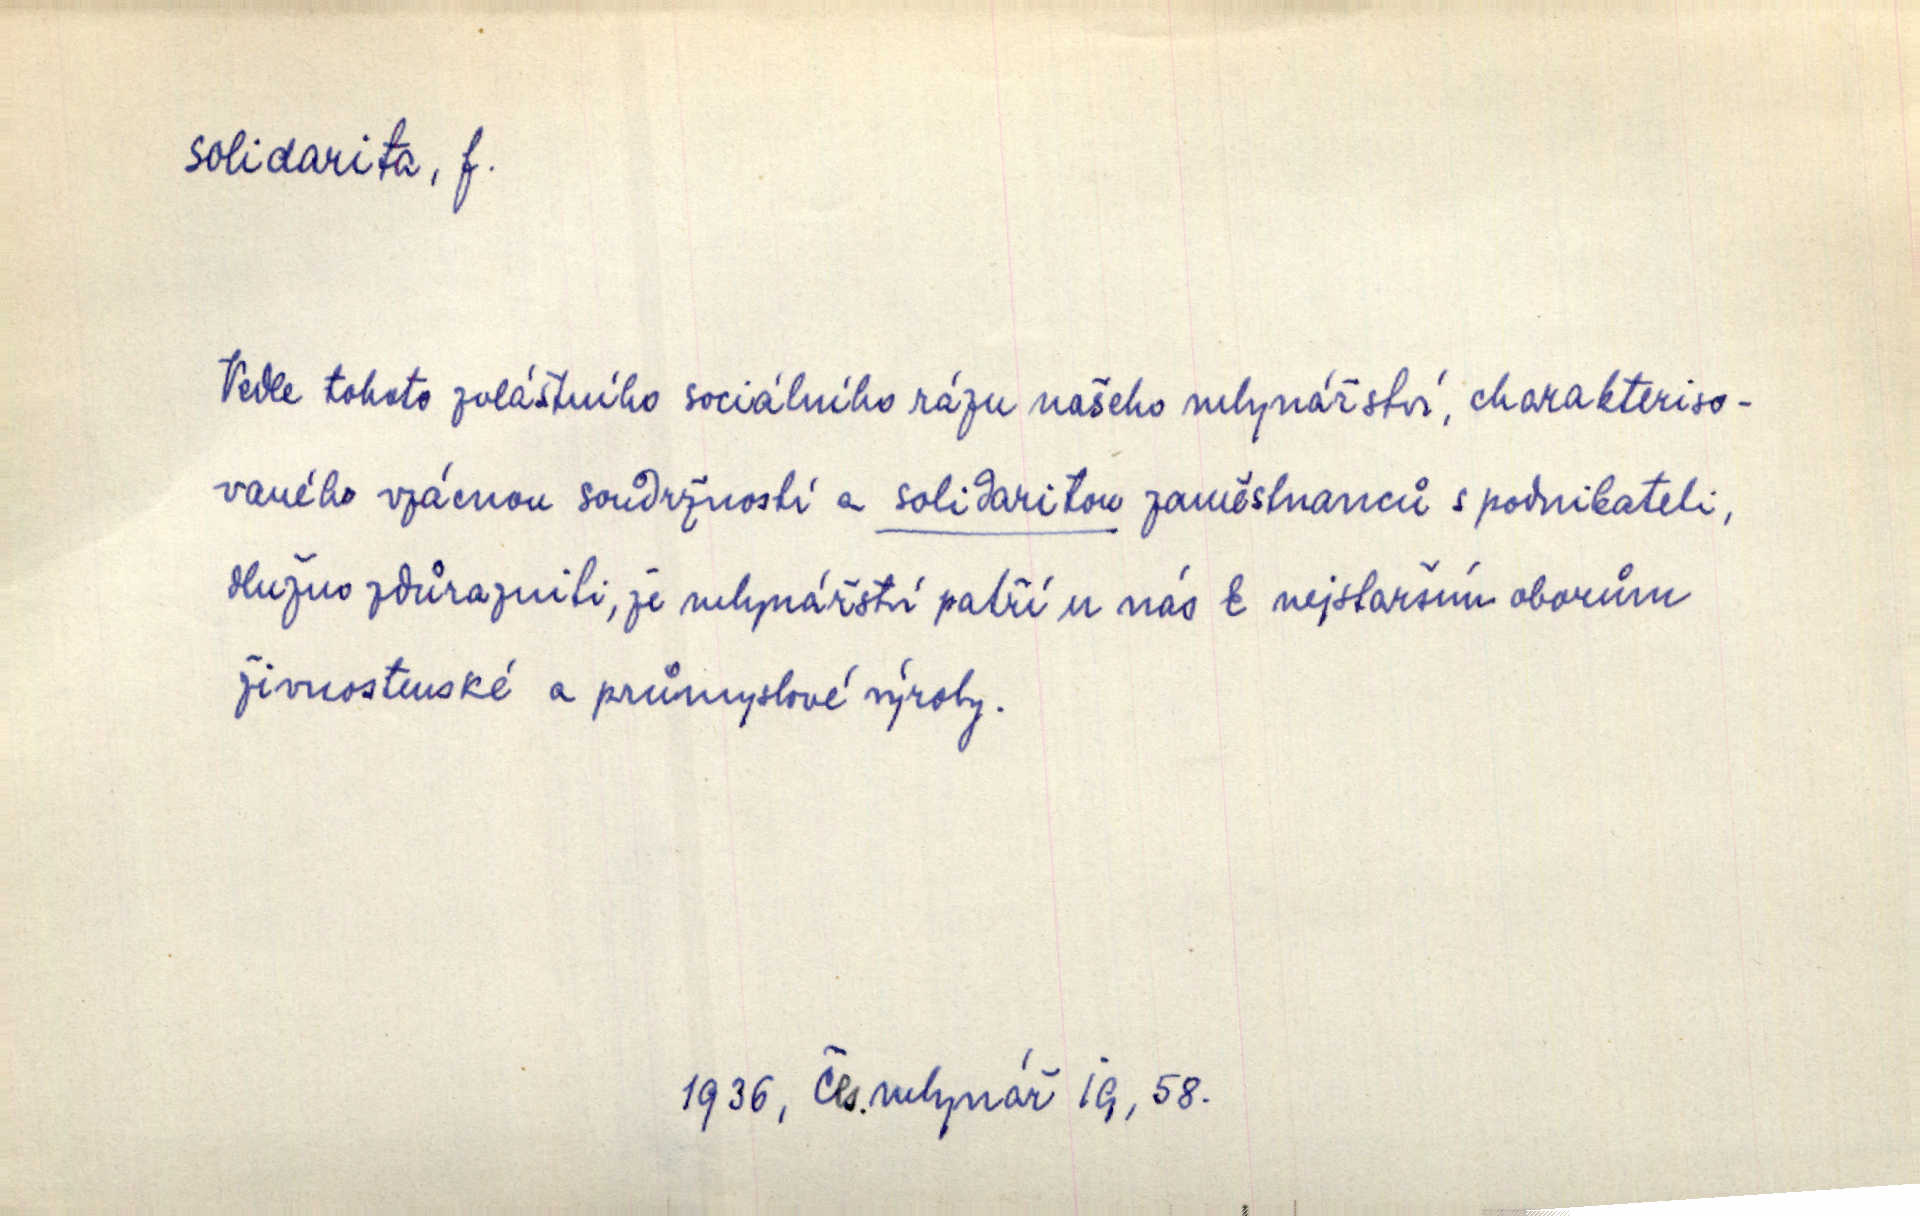 solidarita, f.
Vedle tohoto zvláštního sociálního rázu našeho mlynářství, charakteriso-
vaného vzácnou soudržností a solidaritou zaměstnanců s podnikateli,
dlužno zdůrazniti, že mlynářství patří u nás k nejstarším oborům
živnostenské a průmyslové výroby.
1936, Čls. mlynář 19, 58.